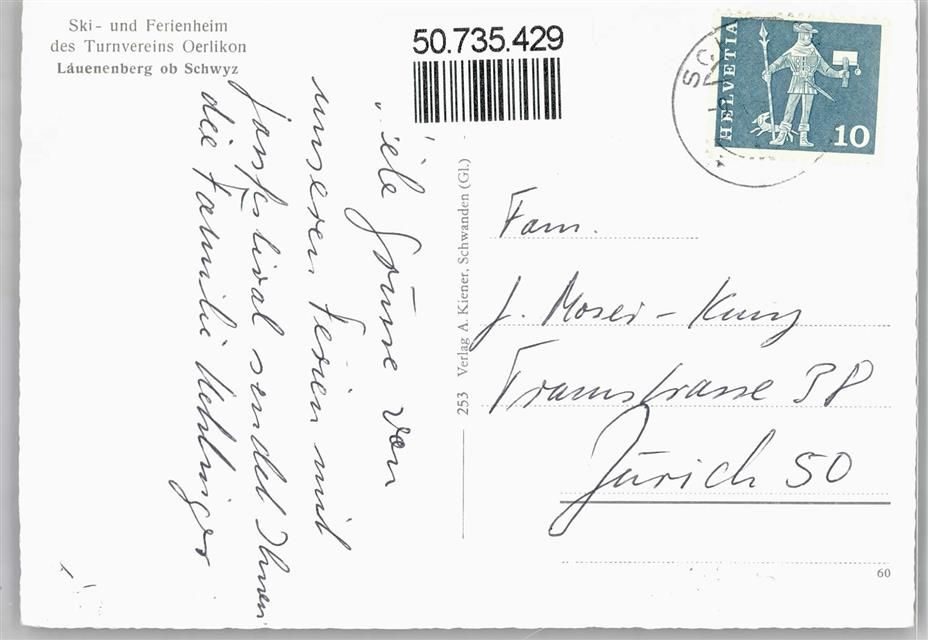 Ski- und Ferienheim
des Turnvereins Oerlikon
Läuenenberg ob Schwyz
50.735.429
HELVETIA
10
Viele Grüsse von
unseren Ferien mit
sendet Ihnen
die Familie
253 Verlag A. Kiener, Schwanden (Gl.)
Fam.
J. Moser-Kunz
Tramstrasse 38
Zürich 50
60